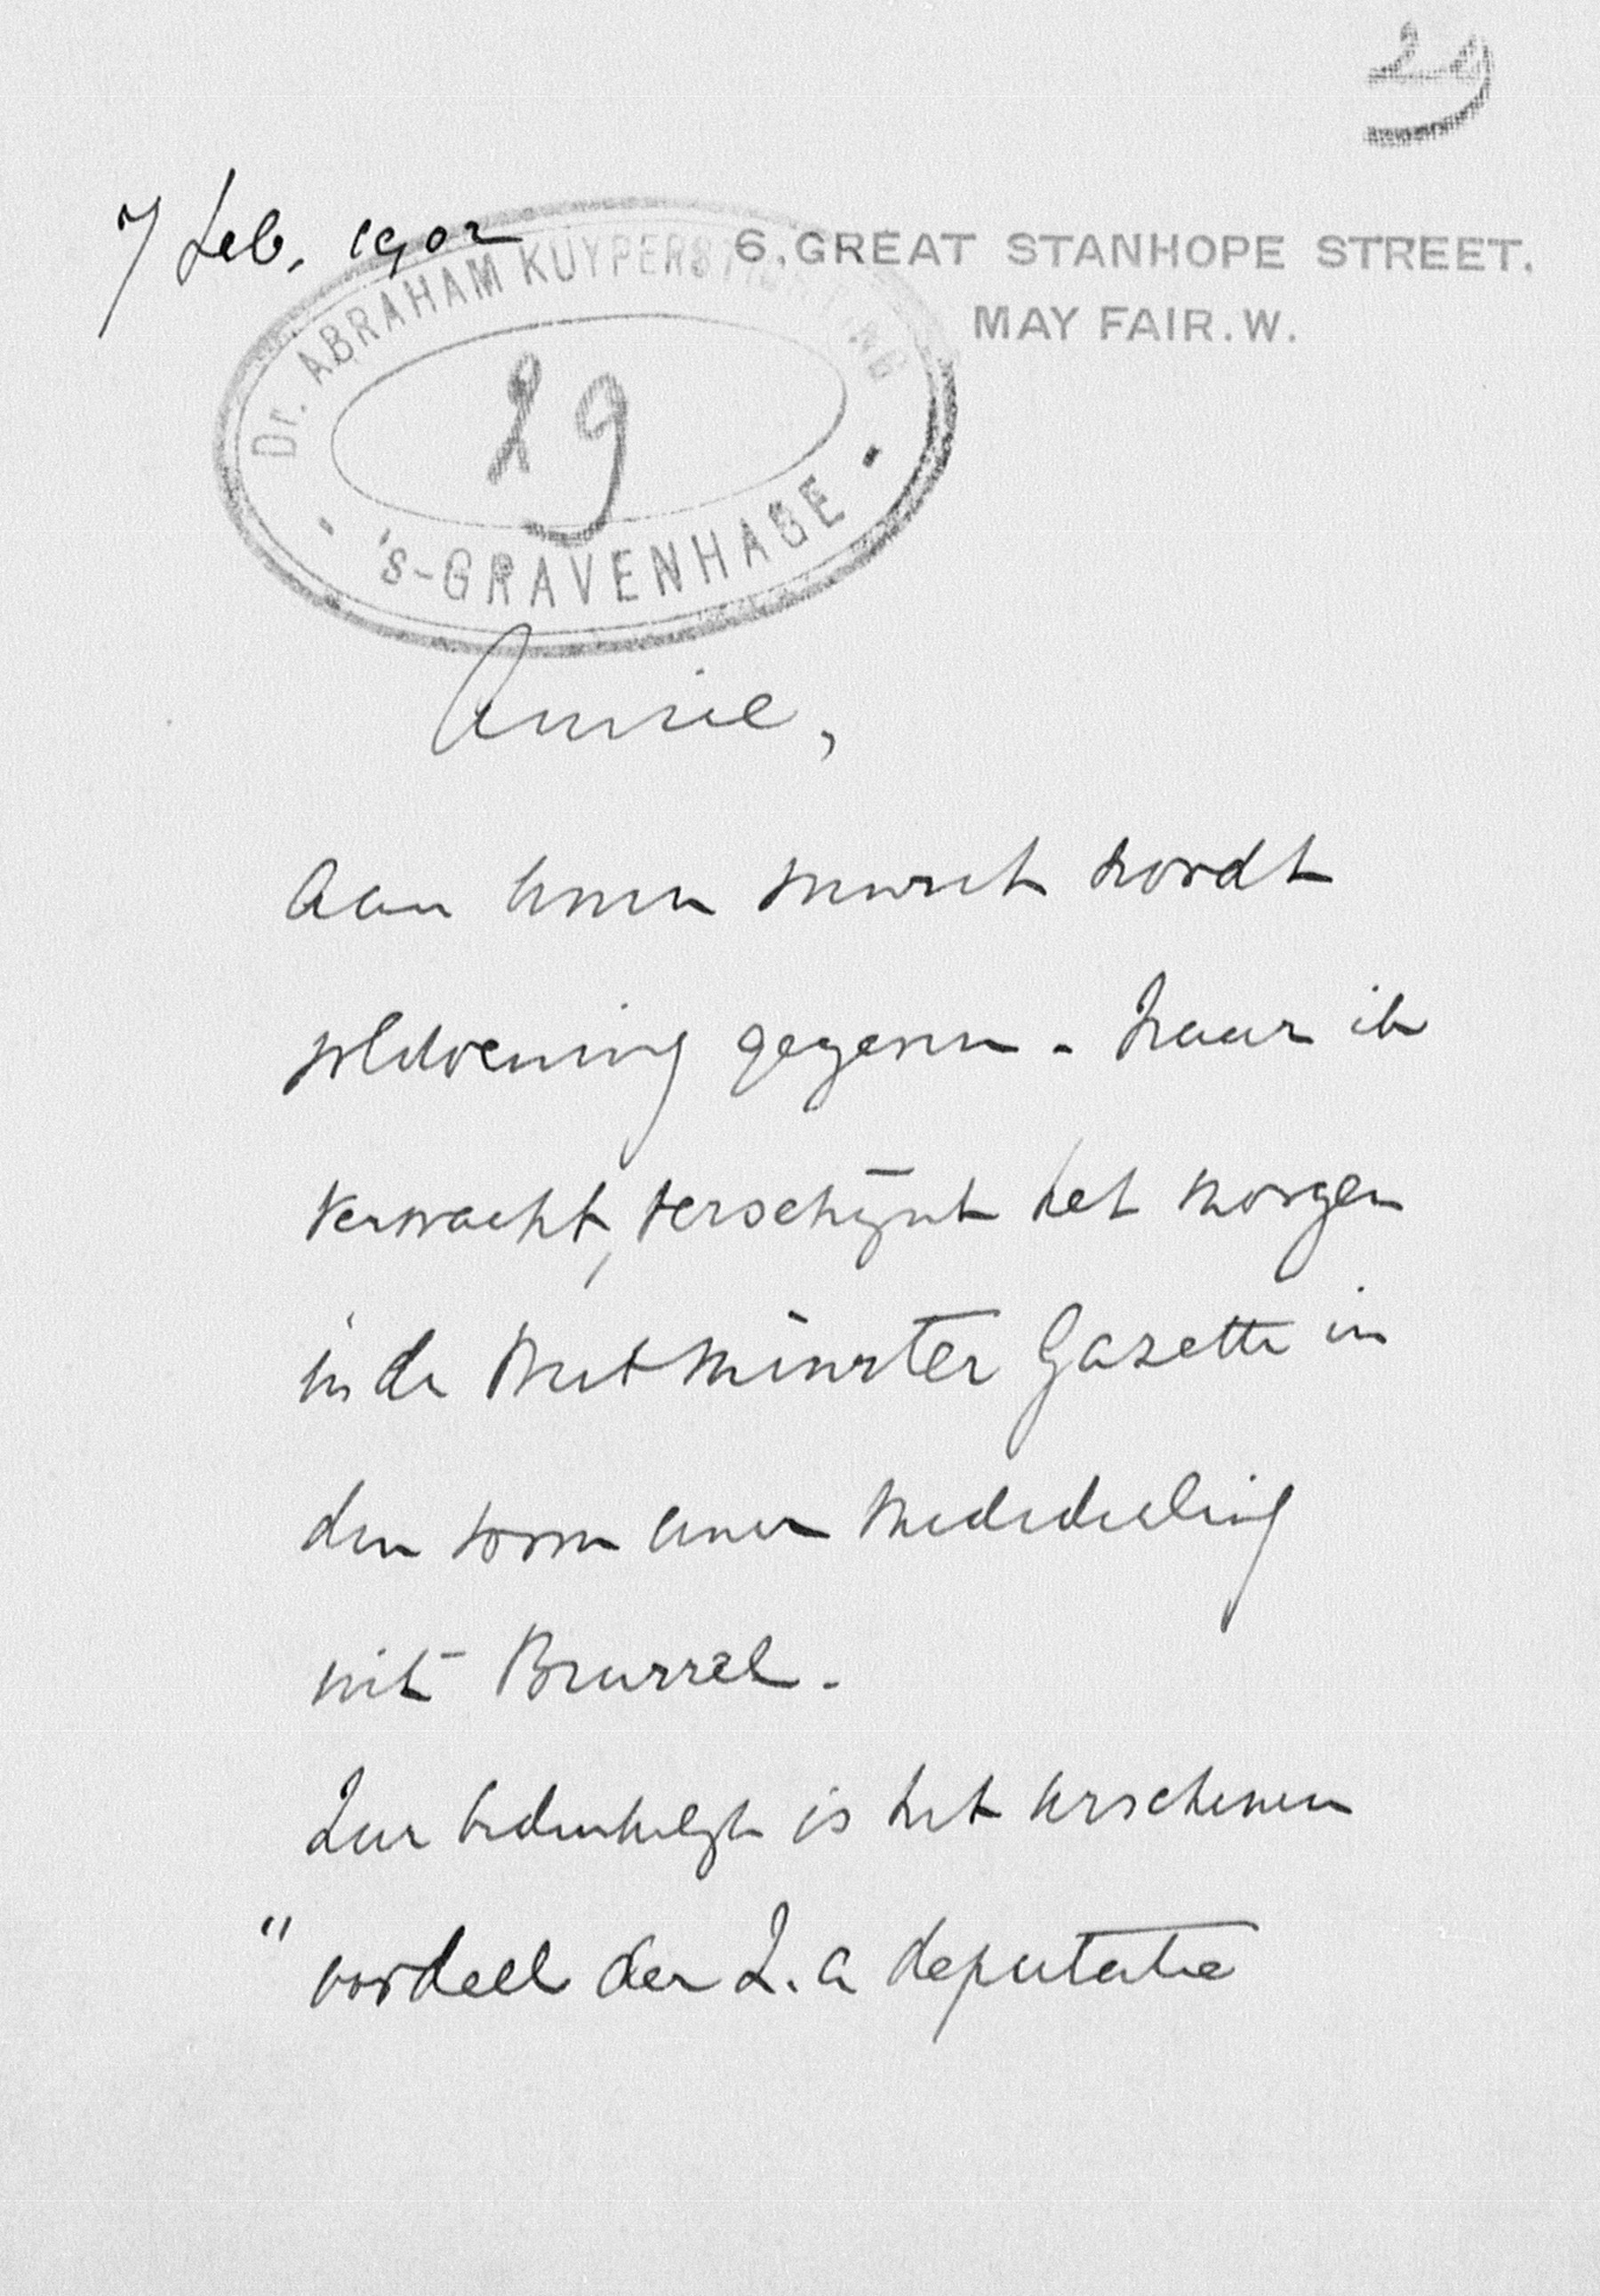 29
7 Feb. 1902
6, GREAT STANHOPE STREET.
MAY FAIR. W.
Dr. ABRAHAM KUYPERSTICHTING
29
's-GRAVENHAGE
Amice,
Aan Uwen wensch wordt
voldoening gegeven. Naar ik
verwacht, verschijnt het morgen
in de Westminster Gazette in
den vorm eener mededeeling
uit Brussel.
Zeer bedenkelijk is het verschenen
" oordeel der Z. A deputatie